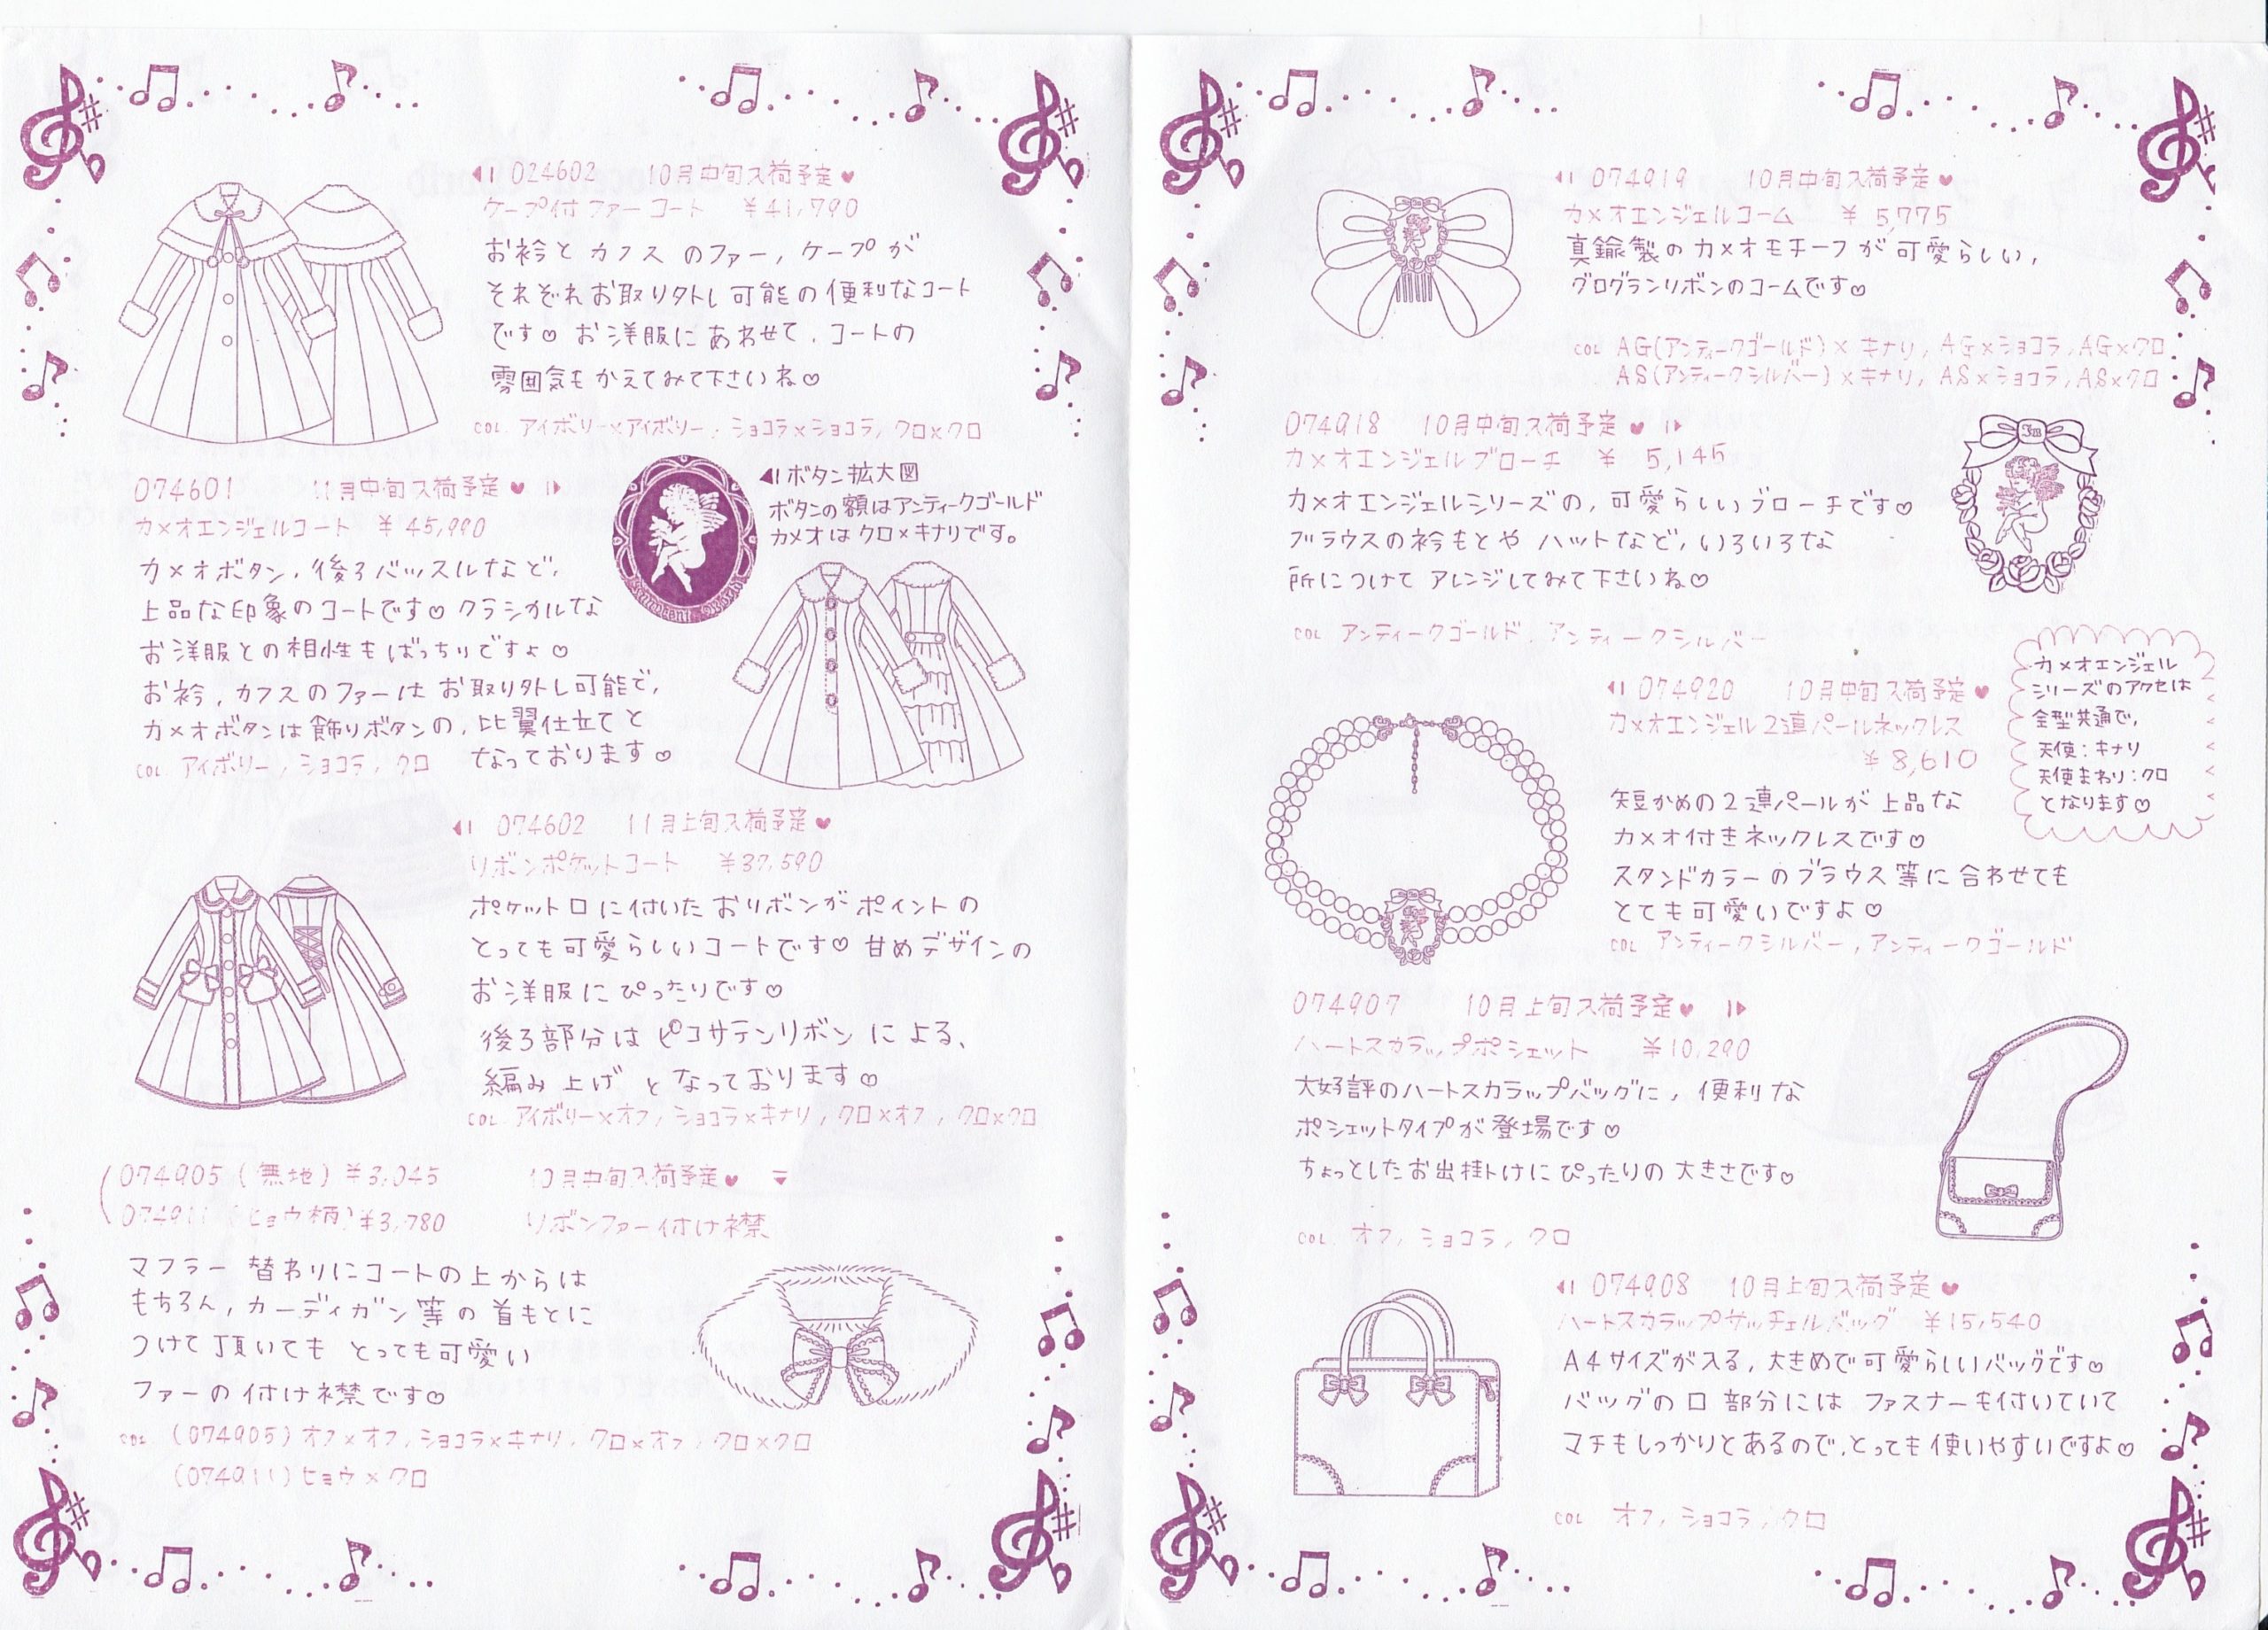 024602 10月中旬入荷予定♥
ケープ付ファーコート ¥41,790
お衿とカフスのファー,ケープが
それぞれお取り外し可能の便利なコート
です♡ お洋服にあわせて,コートの
雰囲気もかえてみて下さいね♡
COL. アイボリー×アイボリー, ショコラ×ショコラ, クロ×クロ
074601 11月中旬入荷予定♥
カメオエンジェルコート ¥45,990
カメオボタン,後ろバッスルなど,
上品な印象のコートです♡ クラシカルな
お洋服との相性もばっちりですょ♡
お衿,カフスのファーはお取り外し可能で,
カメオボタンは飾りボタンの,比翼仕立てと
なっております♡
COL. アイボリー, ショコラ, クロ
ボタン拡大図
ボタンの額はアンティークゴールド
カメオはクロ×キナリです。
074602 11月上旬入荷予定♥
リボンポケットコート ¥37,590
ポケット口に付いたおリボンがポイントの
とっても可愛らしいコートです♡ 甘めデザインの
お洋服にぴったりです♡
後ろ部分はピコサテンリボンによる、
編み上げとなっております♡
COL. アイボリー×オフ, ショコラ×キナリ, クロ×オフ, クロ×クロ
074905(無地)¥3,045 10月中旬入荷予定♥
074911(ヒョウ柄)¥3,780 リボンファー付け襟
マフラー替わりにコートの上からは
もちろん,カーディガン等の首もとに
つけて頂いてもとっても可愛い
ファーの付け襟です♡
COL. (074905)オフ×オフ,ショコラ×キナリ,クロ×オフ,クロ×クロ
(074911)ヒョウ×クロ
074919 10月中旬入荷予定♥
カメオエンジェルコーム ¥5,775
真鍮製のカメオモチーフが可愛らしい,
グログランリボンのコームです♡
COL AG(アンティークゴールド)×キナリ, AG×ショコラ, AG×クロ,
AS(アンティークシルバー)×キナリ, AS×ショコラ, AS×クロ
074918 10月中旬入荷予定♥
カメオエンジェルブローチ ¥5,145
カメオエンジェルシリーズの,可愛らしいブローチです♡
ブラウスの衿もとやハットなど,いろいろな
所につけてアレンジしてみて下さいね♡
COL アンティークゴールド, アンティークシルバー
074920 10月中旬入荷予定♥
カメオエンジェル2連パールネックレス
¥8,610
短かめの2連パールが上品な
カメオ付きネックレスです♡
スタンドカラーのブラウス等に合わせても
とても可愛いですよ♡
COL アンティークシルバー, アンティークゴールド
カメオエンジェル
シリーズのアクセは
全型共通で,
天使:キナリ
天使まわり:クロ
となります♡
074907 10月上旬入荷予定♥
ハートスカラップポシェット ¥10,290
大好評のハートスカラップバッグに,便利な
ポシェットタイプが登場です♡
ちょっとしたお出掛けにぴったりの大きさです♡
COL. オフ, ショコラ, クロ
074908 10月上旬入荷予定♥
ハートスカラップサッチェルバッグ ¥15,540
A4サイズが入る,大きめで可愛らしいバッグです♡
バッグの口部分にはファスナーも付いていて
マチもしっかりとあるので,とっても使いやすいですよ♡
COL オフ, ショコラ, クロ